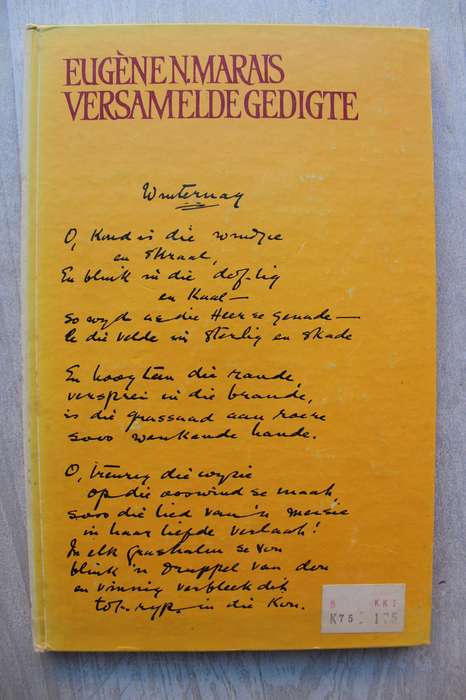 EUGÈNE N. MARAIS
VERSAMELDE GEDIGTE
Winternag
O, koud is die windjie
en skraal,
En blink in die dof-lig
en kaal—
so wyd as die Heer se genade—
lê die velde in sterlig en skade
En hoog teen die rande,
versprei in die brande,
is die grassaad aan roere
soos wenkende hande.
O, treurig die wysie
op die ooswind se maat,
soos die lied van 'n meisie
in haar liefde verlaat!
In elk grashalm se vou
blink 'n druppel van dou
en vinnig verbleek dit
tot ryp in die kou.
8 KKI
K75 175